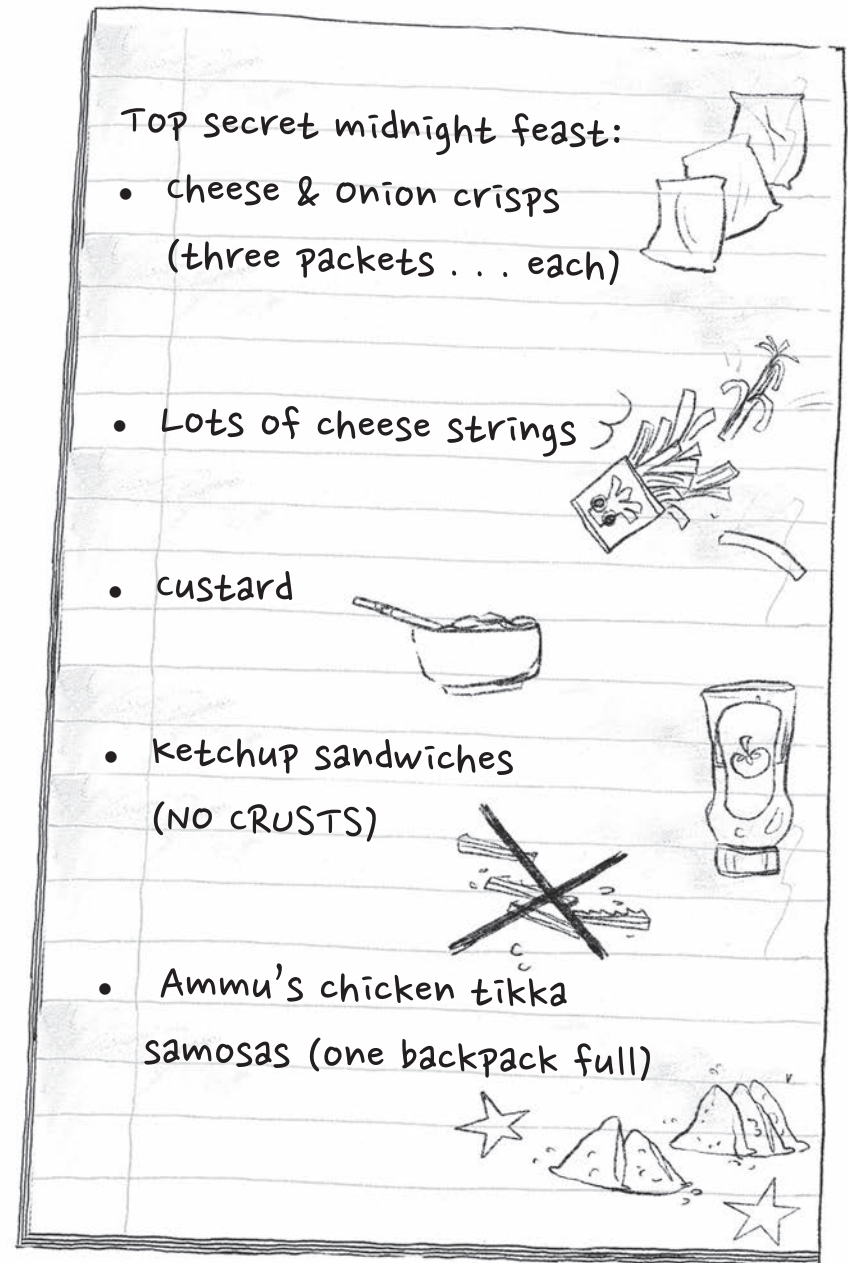 Top secret midnight feast:
• cheese & onion crisps
(three packets . . . each)
• Lots of cheese strings
• custard
• ketchup sandwiches
(NO CRUSTS)
• Ammu's chicken tikka
samosas (one backpack full)